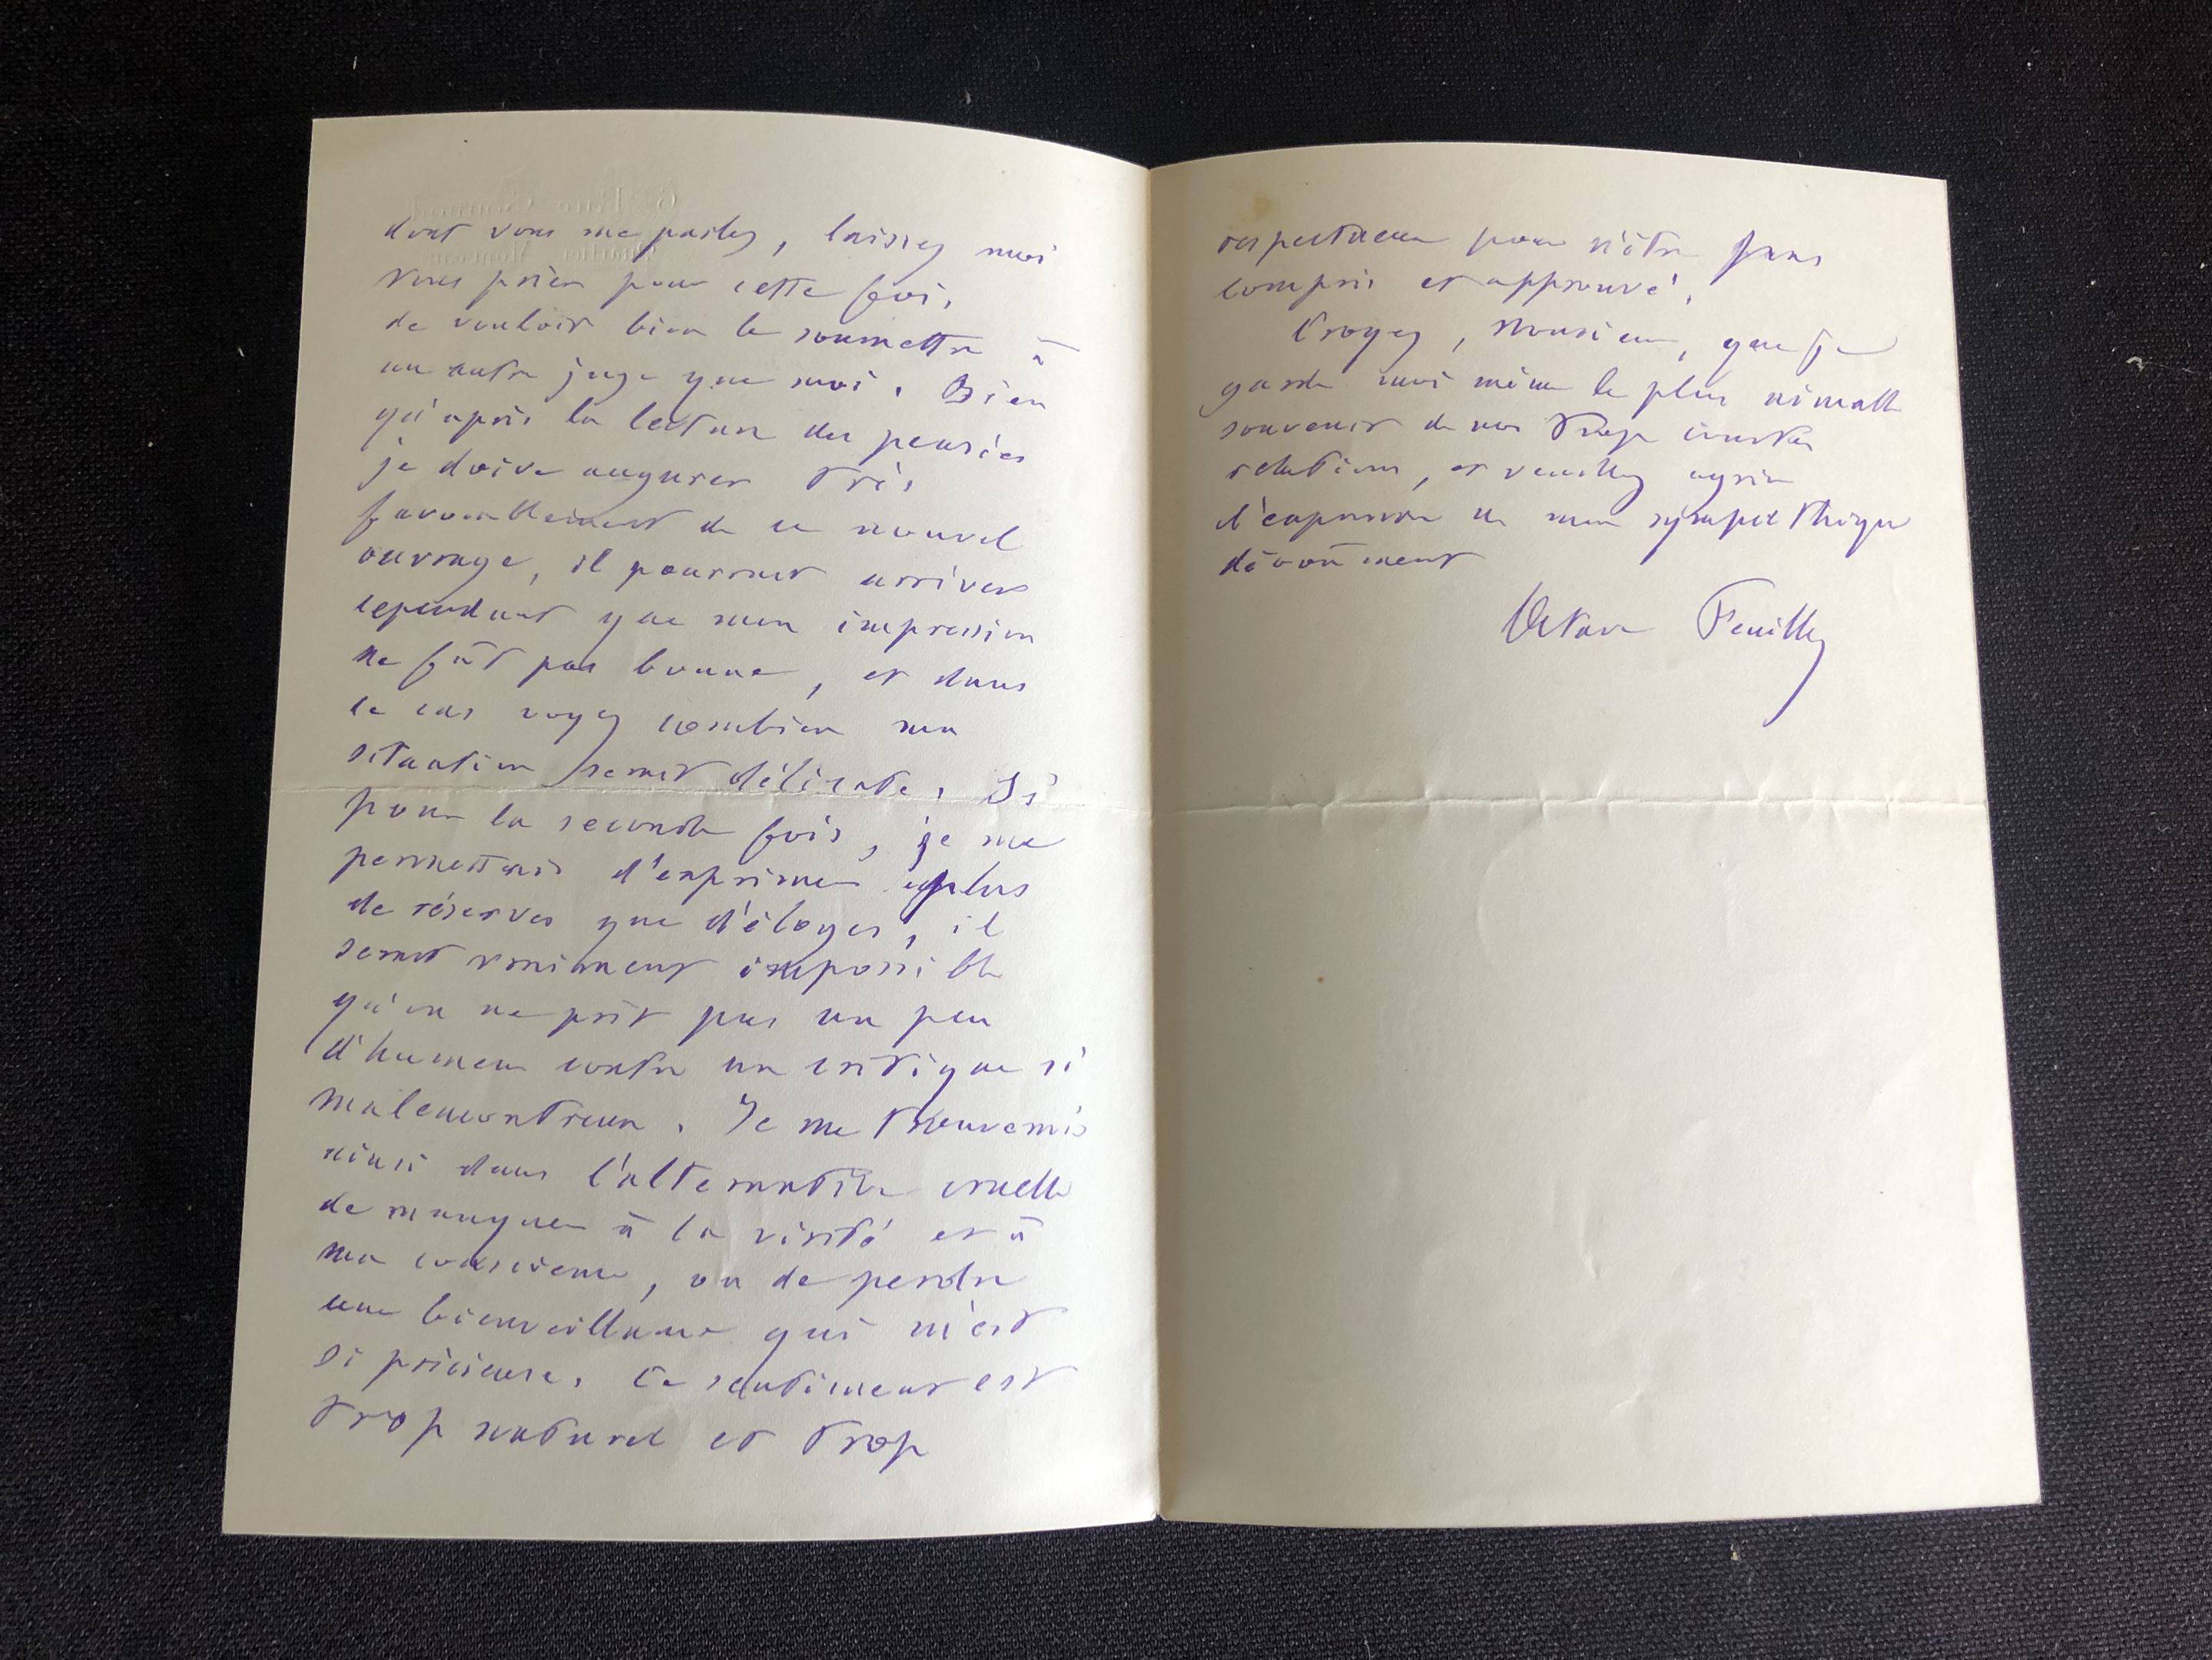 6 Rue Gounod
Quartier Monceau
dont vous me parlez, laissez moi
vous prier pour cette fois,
de vouloir bien le soumettre à
un autre juge que moi. Bien
qu'après la lecture des pensées
je doive augurer très
favorablement de ce nouvel
ouvrage, il pourrait arriver
cependant que mon impression
ne fût pas bonne, et dans
ce cas voyez combien ma
situation serait délicate. Si
pour la seconde fois, je me
permettais d'exprimer plus
de réserves que d'éloges, il
serait vraiment impossible
qu'on ne prît pas un peu
d'humeur contre un critique si
malencontreux. Je me trouverais
ainsi dans l'alternative cruelle
de manquer à la vérité et à
ma conscience, ou de perdre
une bienveillance qui m'est
si précieuse. Ce sentiment est
trop naturel et trop
respectueux pour n'être pas
compris et approuvé.
Croyez, Monsieur, que je
garde moi même le plus aimable
souvenir de nos trop courtes
relations, et veuillez agréer
l'expression de mon sympathique
dévoûment
Octave Feuillet